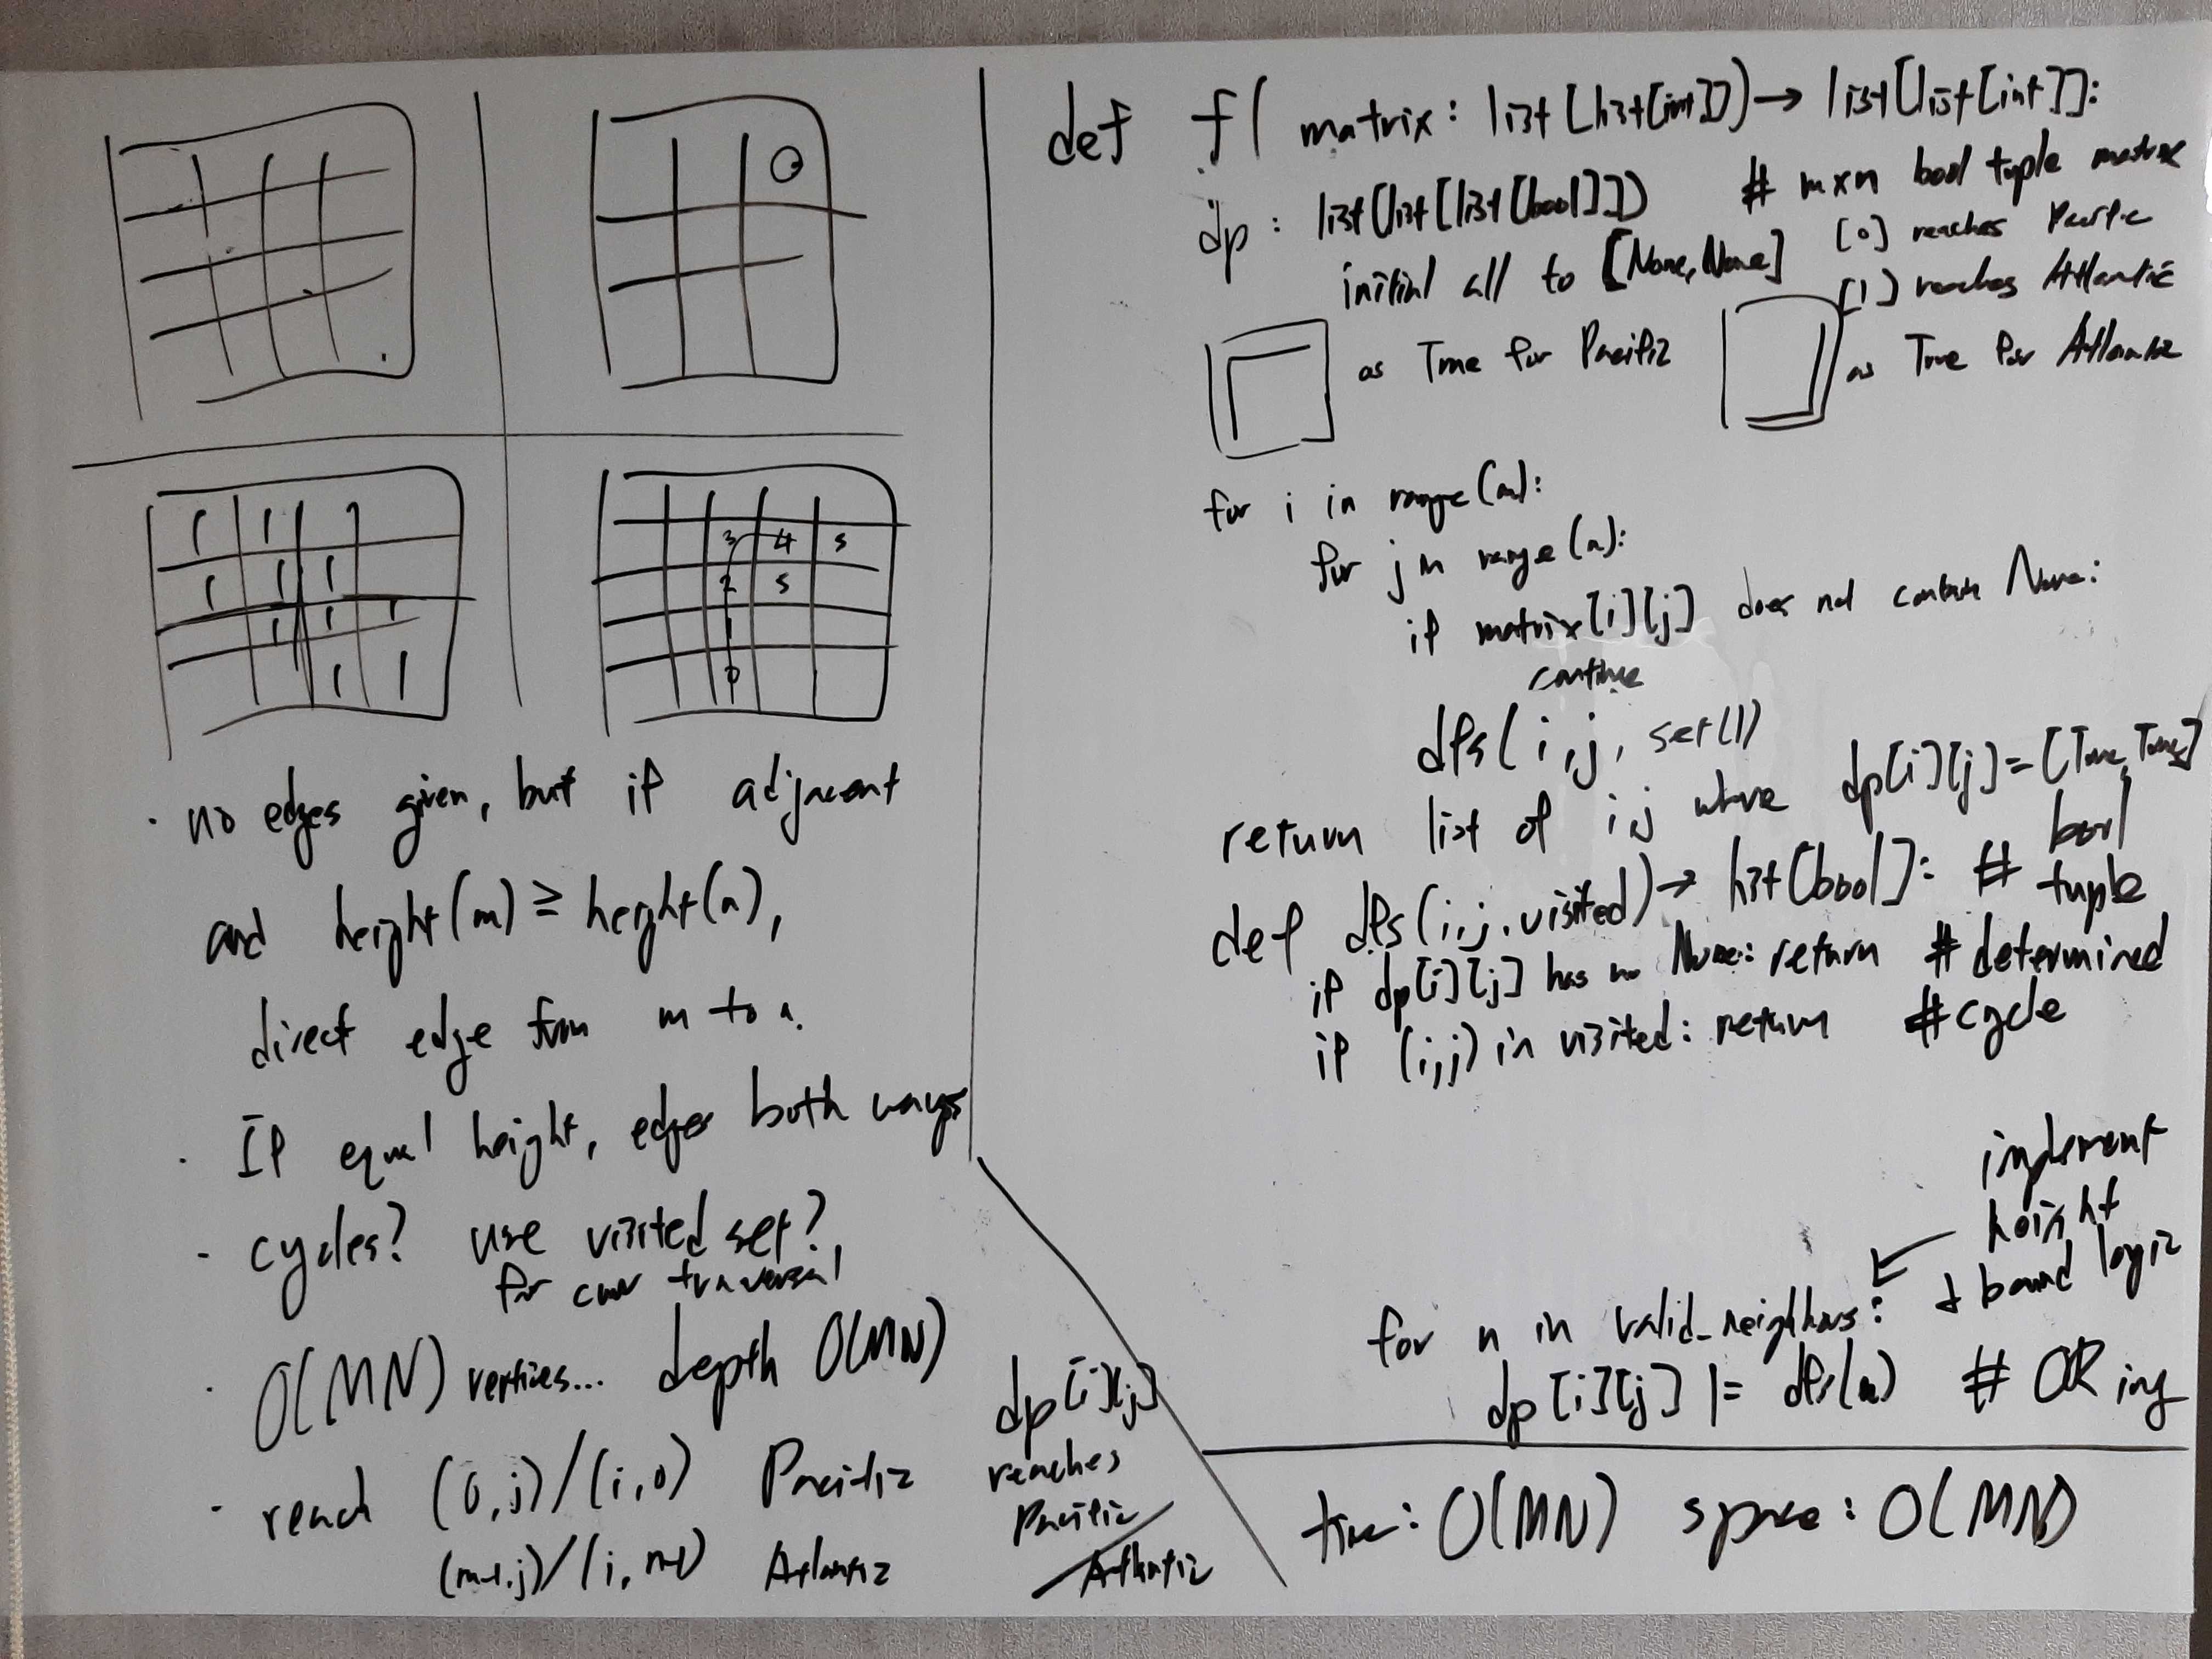 1 1
1 1 1
1 1 1
1 1
3 4 5
2 5
1
0
· no edges given, but if adjacent
and height(m) ≥ height(n),
direct edge from m to n.
· If equal height, edges both ways
· cycles? use visited set?
for curr traversal
· O(MN) vertices... depth O(MN)
· reach (0,j)/(i,0) Pacific
(m-1,j)/(i,n-1) Atlantic
dp[i][j]
reaches
Pacific
Atlantic
def f( matrix: list[list[int]]) → list[list[int]]:
dp: list[list[list[bool]]] # mxn bool tuple matrix
initial all to [None, None] [0] reaches Pacific
[1] reaches Atlantic
as True for Pacific as True for Atlantic
for i in range(m):
for j in range(n):
if matrix[i][j] does not contain None:
continue
dfs(i,j, set())
return list of i,j where dp[i][j]=[True,True]
def dfs(i,j,visited) → list[bool]: # bool tuple
if dp[i][j] has no None: return # determined
if (i,j) in visited: return #cycle
implement
height
& bound logic
for n in valid_neighbors:
dp[i][j] |= dfs(n) # OR ing
time: O(MN) space: O(MN)